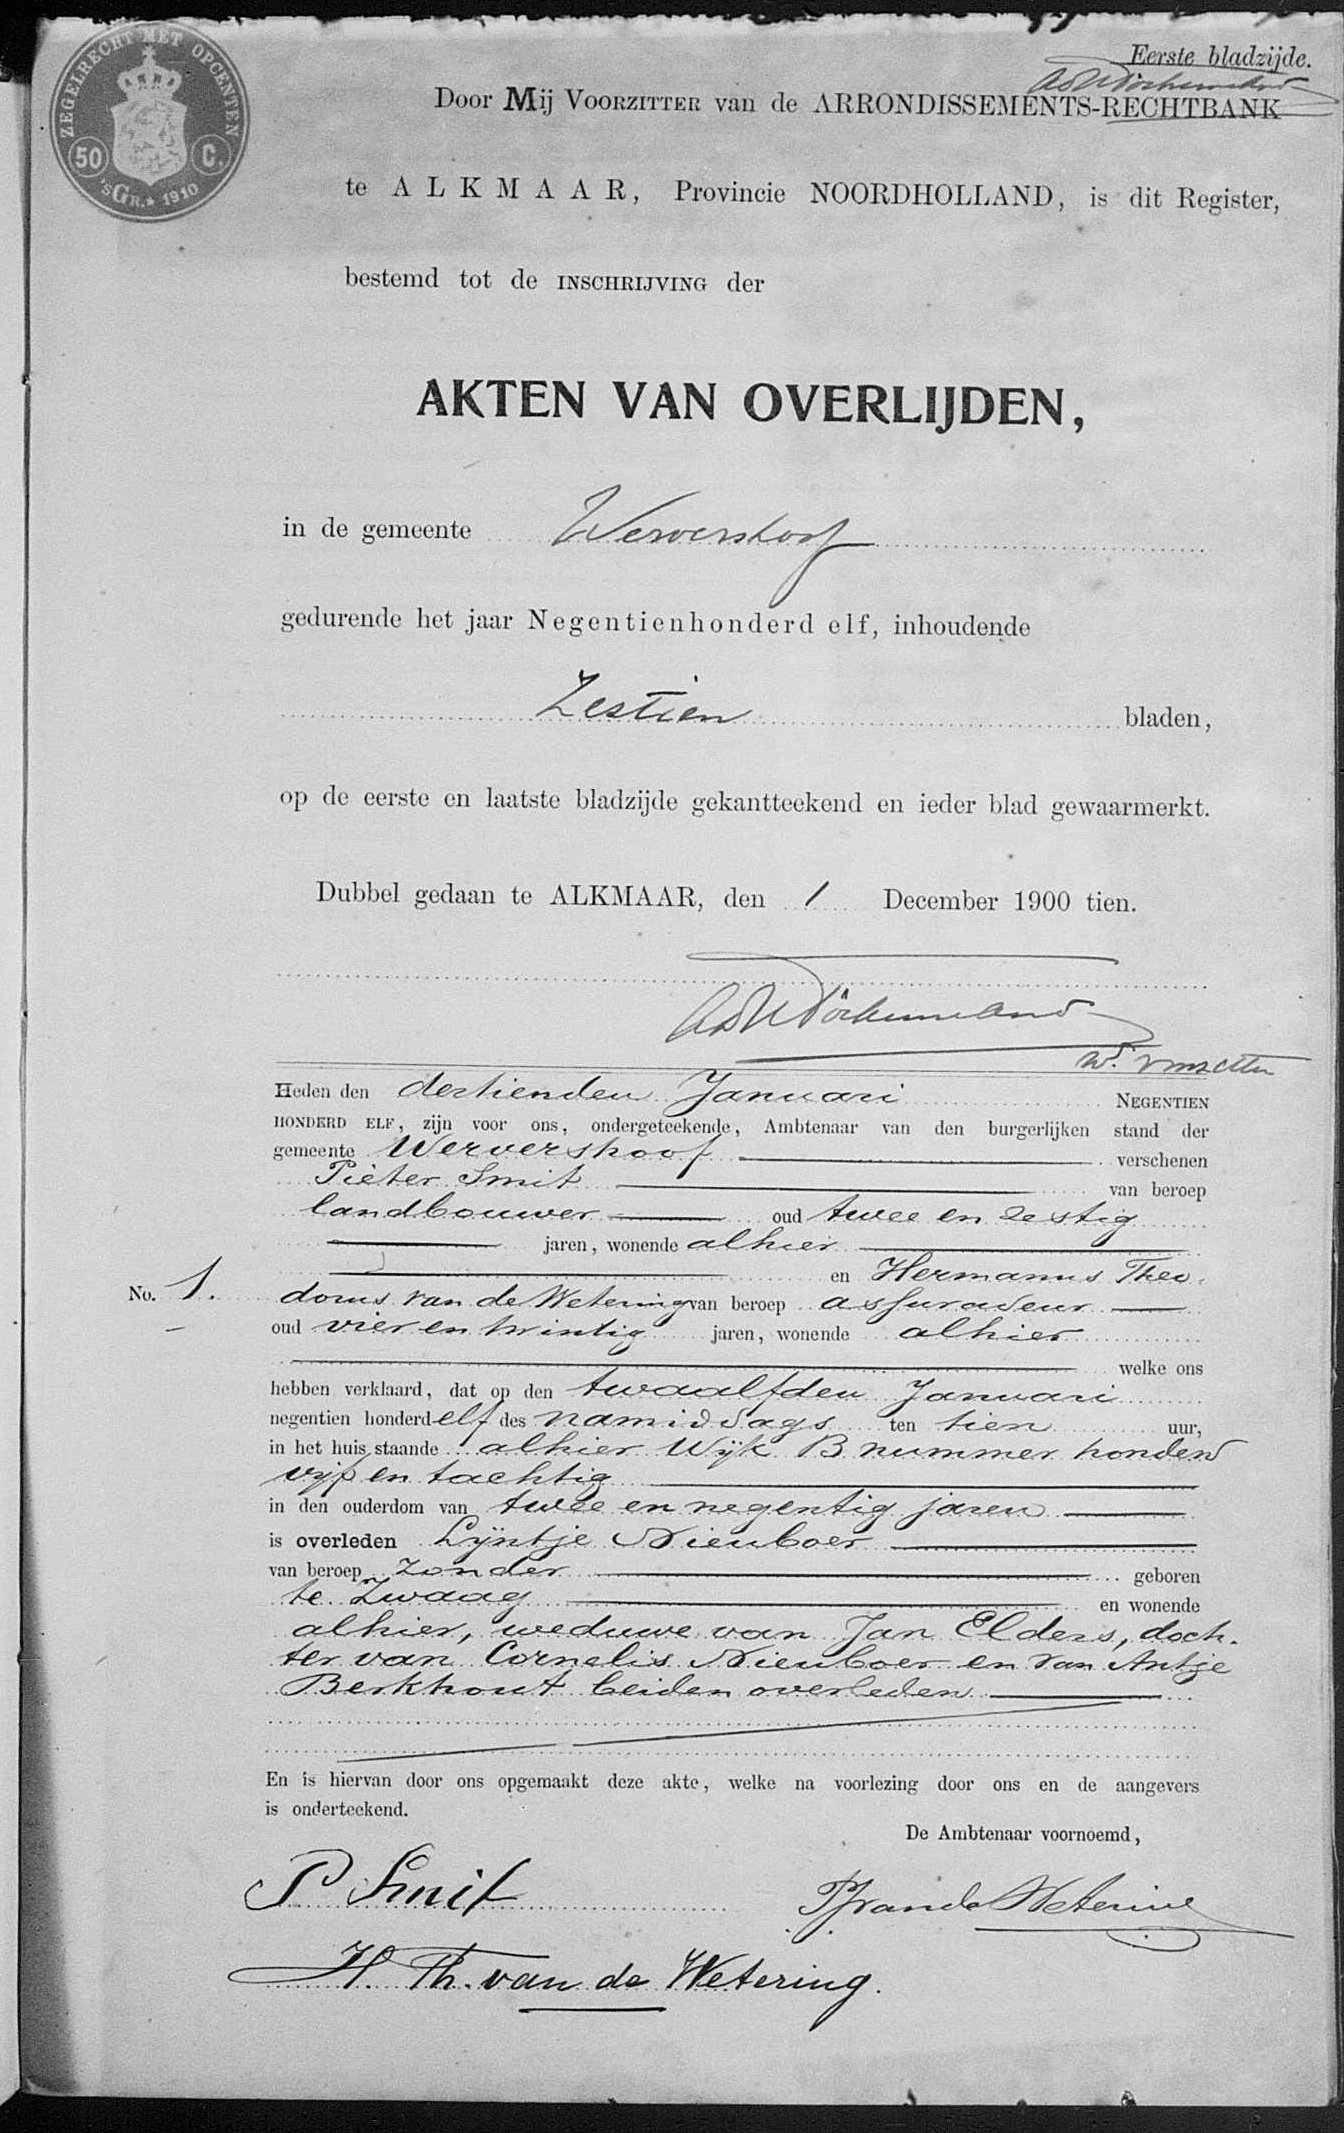 ZEGELRECHT MET OPCENTEN
50 C.
'SGR. * 1910
Eerste bladzijde.
Door Mij VOORZITTER van de ARRONDISSEMENTS-RECHTBANK
te ALKMAAR, Provincie NOORDHOLLAND, is dit Register,
bestemd tot de INSCHRIJVING der
AKTEN VAN OVERLIJDEN,
in de gemeente Wervershoof
gedurende het jaar Negentienhonderd elf, inhoudende
Zestien bladen,
op de eerste en laatste bladzijde gekantteekend en ieder blad gewaarmerkt.
Dubbel gedaan te ALKMAAR, den 1 December 1900 tien.
Heden den dertienden Januari NEGENTIEN
HONDERD ELF, zijn voor ons, ondergeteekende, Ambtenaar van den burgerlijken stand der
gemeente Wervershoof verschenen
Pieter Smit van beroep
landbouwer oud twee en zestig
jaren, wonende alhier
en Hermanus Theo-
No. 1. dorus van de Wetering van beroep assuradeur
oud vier en twintig jaren, wonende alhier
welke ons
hebben verklaard, dat op den twaalfden Januari
negentien honderd elf des namiddags ten tien uur,
in het huis staande alhier Wijk B nummer honderd
vijf en tachtig
in den ouderdom van twee en negentig jaren
is overleden Lijntje Nieuboer
van beroep zonder geboren
te Zwaag en wonende
alhier, weduwe van Jan Elders, doch-
ter van Cornelis Nieuboer en van Antje
Berkhout beiden overleden
En is hiervan door ons opgemaakt deze akte, welke na voorlezing door ons en de aangevers
is onderteekend.
De Ambtenaar voornoemd,
P Smit
van de Wetering
H. Th. van de Wetering.